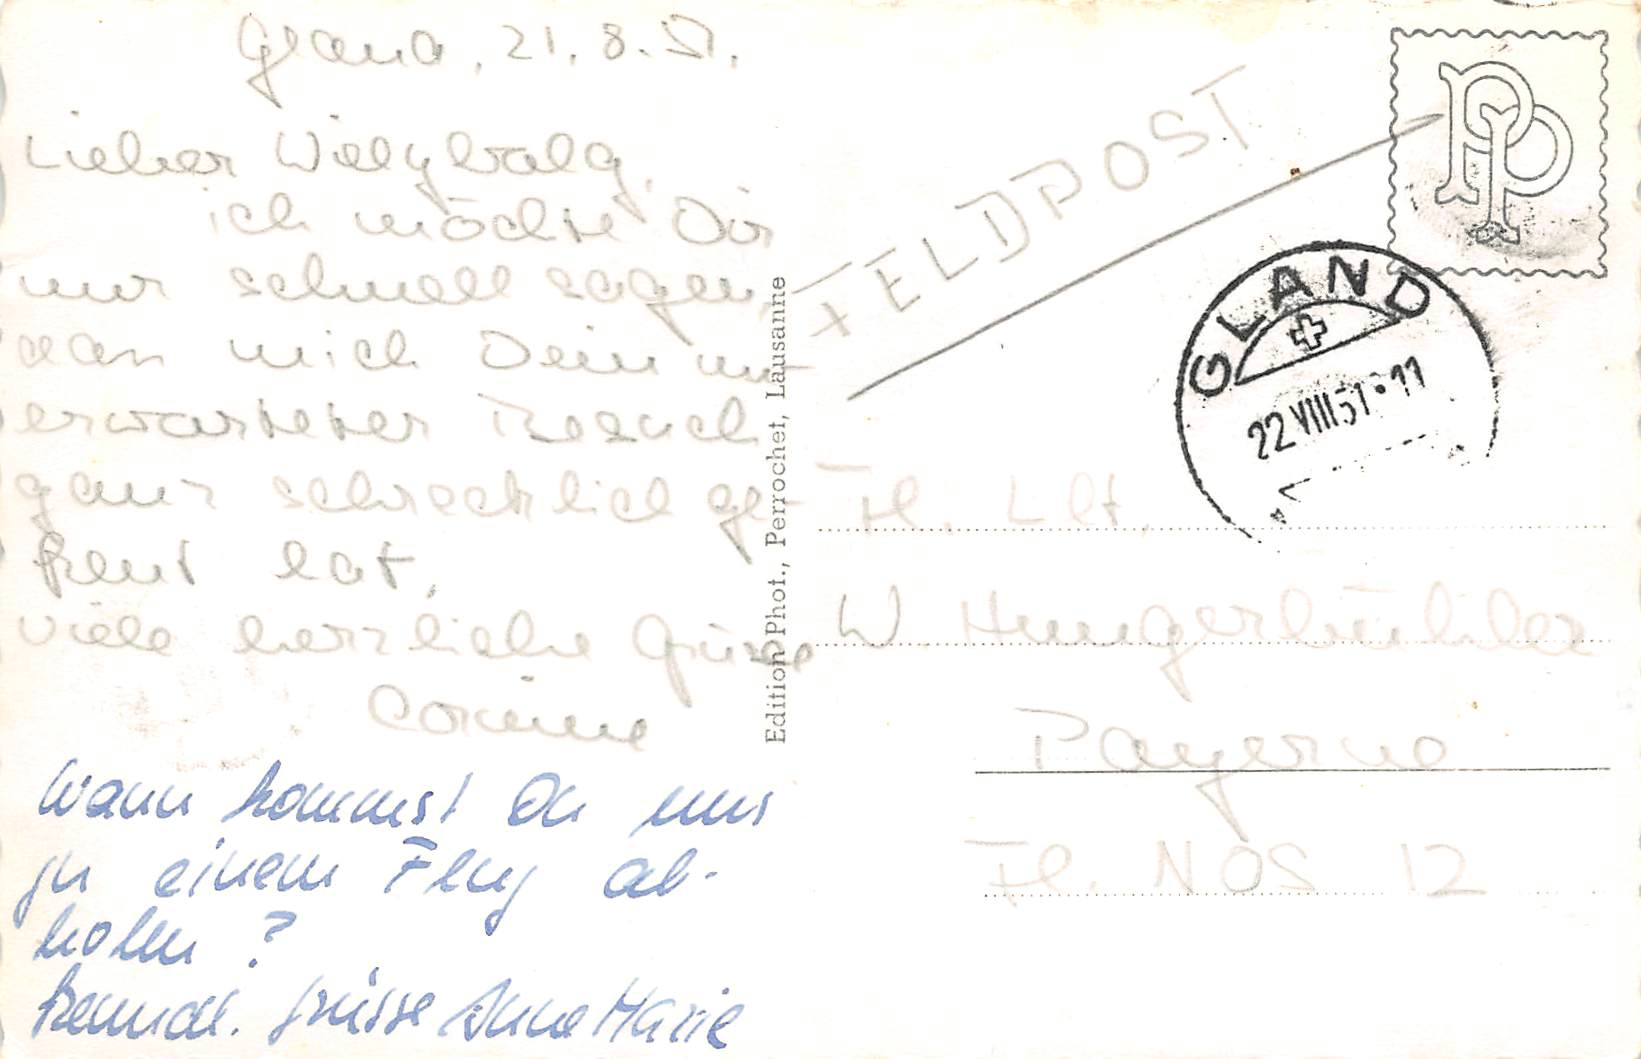 Gland, 21.8.51.
Lieber Willybalg,
ich möchte Dir
nur schnell sagen,
dass mich Dein un-
erwarteter Besuch
ganz schrecklich ge-
freut hat.
Viele herzliche Grüsse
Corinne
Wann kommst Du uns
zu einem Flug ab-
holen ?
Freundl. Grüsse AnneMarie
Edition Phot., Perrochet, Lausanne
FELDPOST
PP
GLAND
22 VIII 51 • 11
Fl. Lt.
W Hungerbühler
Payerne
Fl. NOS 12